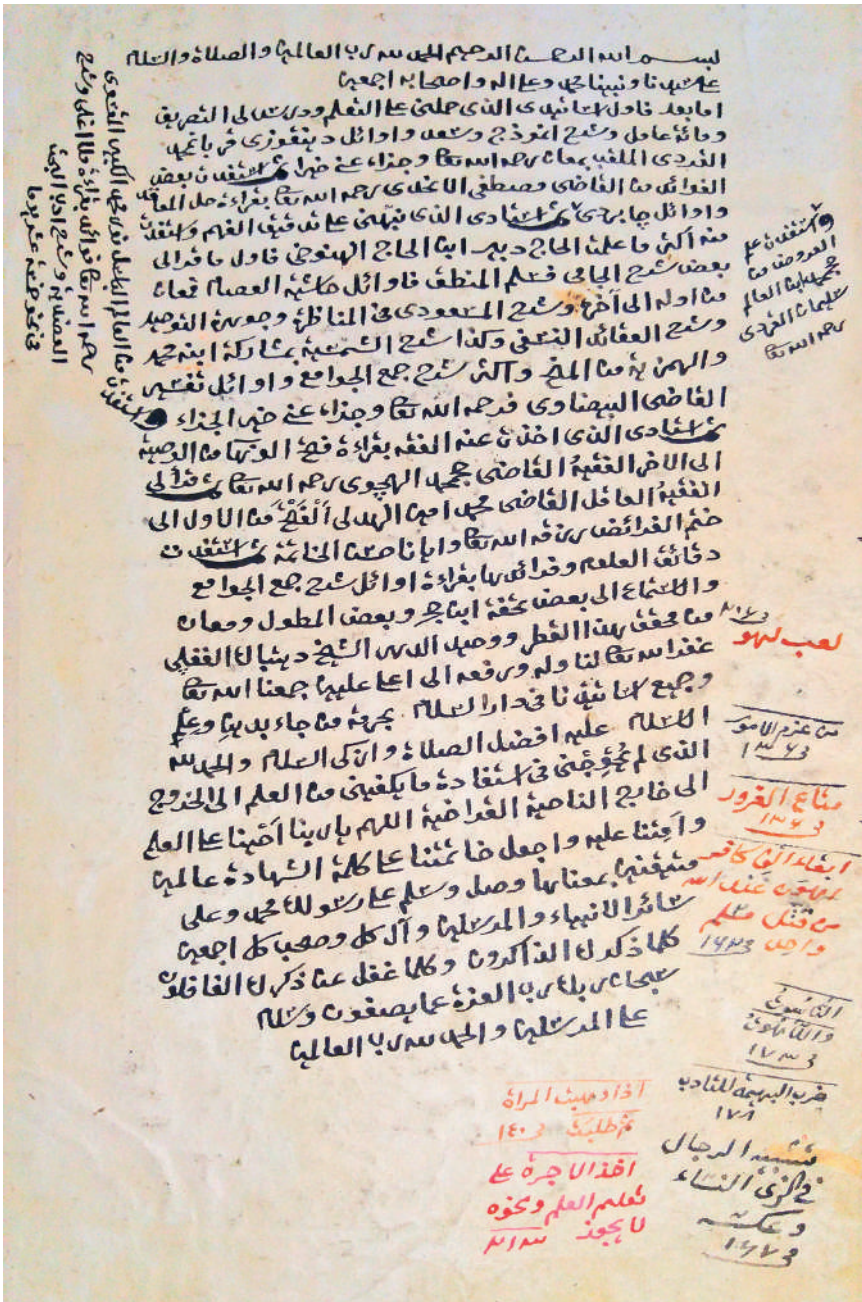 بسم الله الرحمن الرحيم الحمد لله رب العالمين والصلاة والسلام
على سيدنا ونبينا محمد وعلى اله واصحابه اجمعين
اما بعد فاول استاذي الذي حملني على التعلم ودرس لي التصريف
ومائة عامل وشرح انموذج وسعد واوائل دينقوزي قربانمحمد
القردي الملقب بمعان رحمه الله تعا وجزاه عنى خيرا ثم استفدت بعض
الفوائد من القاضي مصطفى الاغدي رحمه الله تعا بقراءة حل المعاقد
واوائل جابردي ثم استاذي الذي نبهني على تدقيق الفهم واستفدت
منه اكثر ما علمت الحاج دبير ابن الحاج الهنوخي فاول ما قرا لي
بعض شرح الجامي فسلم المنطق فاوائل حاشية العصام فمعان
من اوله الى آخره وشرح المسعودي في المناظرة وجوهرة التوحيد
وشرح العقائد النسفي وكذا شرح الشمسية بمشاركة ابنه محمد
والهمزية من المنح واكثر شرح جمع الجوامع واوائل تفسير
القاضي البيضاوي فرحمه الله تعا وجزاه عنى خير الجزاء
ثم استاذي الذي اخذت عنه الفقه بقراءة فتح الوهاب من الوصية
الى الاخر الفقيه القاضي حجمحمد الهجوى رحمه الله تعا ثم قرا لي
الفقيه العاقل القاضي محمد امين الهدلي الفتح من الاول الى
ختم الفرائض رزقه الله تعا وايانا حسن الخاتمة ثم استفدت
دقائق العلوم وفوائدها بقراءة اوائل شرح جمع الجوامع
والاستماع الى بعض تحفة ابن حجر وبعض المطول ومعان
من محقق هذا القطر ووحيد الدهر الشيخ دبنيال القفلي
غفر الله تعا لنا وله ورفعه الى اعلا عليين جمعنا الله تعا
وجميع اساتيذنا في دار السلام بحرمة من جاء بدين وعلم
الاسلام عليه افضل الصلاة وازكى السلام والحمد لله
الذي لم يحوجني في استفادة ما يكفيني من العلم الى الخروج
الى خارج الناحية القراخية اللهم يا ربنا احينا على العلم
وامتنا عليه واجعل خاتمتنا على كلمة الشهادة عالمين
متيقنين بمعناها وصل وسلم على رسولك محمد وعلى
سائر الانبياء والمرسلين وآل كل وصحب كل اجمعين
كلما ذكرك الذاكرون وكلما غفل عن ذكرك الغافلون
سبحان ربك رب العزة عما يصفون وسلام
على المرسلين والحمد لله رب العالمين
واستفدت من العالم الفاضل محمد الكبير القنوي
رحمه الله تعا فوائد بقراءة ملا اغلى وشرح
العضدية وشرح اداب البحث
في نحو خمسة عشر يوما
واستفدت علم
العروض من
حجمحمد ابن العالم
سليمان القردي
رحمه الله تعا
لعب لهو
من عزم الامور
متاع الغرور
ابقاء الف كافر
اهون عند الله
من قتل مسلم
واحد
ضرب البهيمة للتاديب
١٧٨
تشبيه الرجال
في الزي النساء
وعكسه
اذا وهبت المراة
ثم طلبت في ١٤٠
اخذ الاجرة على
تعليم العلم ونحوه
لا يجوز ٢١٣